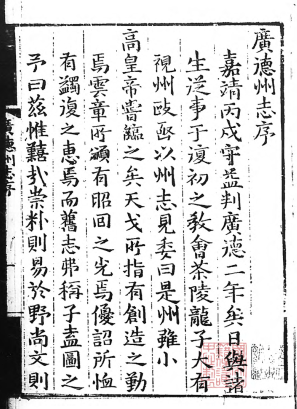 廣德州志序
嘉靖丙戌守益判廣德二年矣日與諸
生從事于復初之教會茶陵龍子大有
視州政亟以州志見委曰是州雖小
高皇帝嘗臨之矣天戈所指有創造之勤
焉雲章所頒有昭回之光焉優詔所恤
有蠲復之惠焉而舊志弗稱子盍圖之
予曰茲惟難哉崇朴則易於野尚文則
廣德州志序